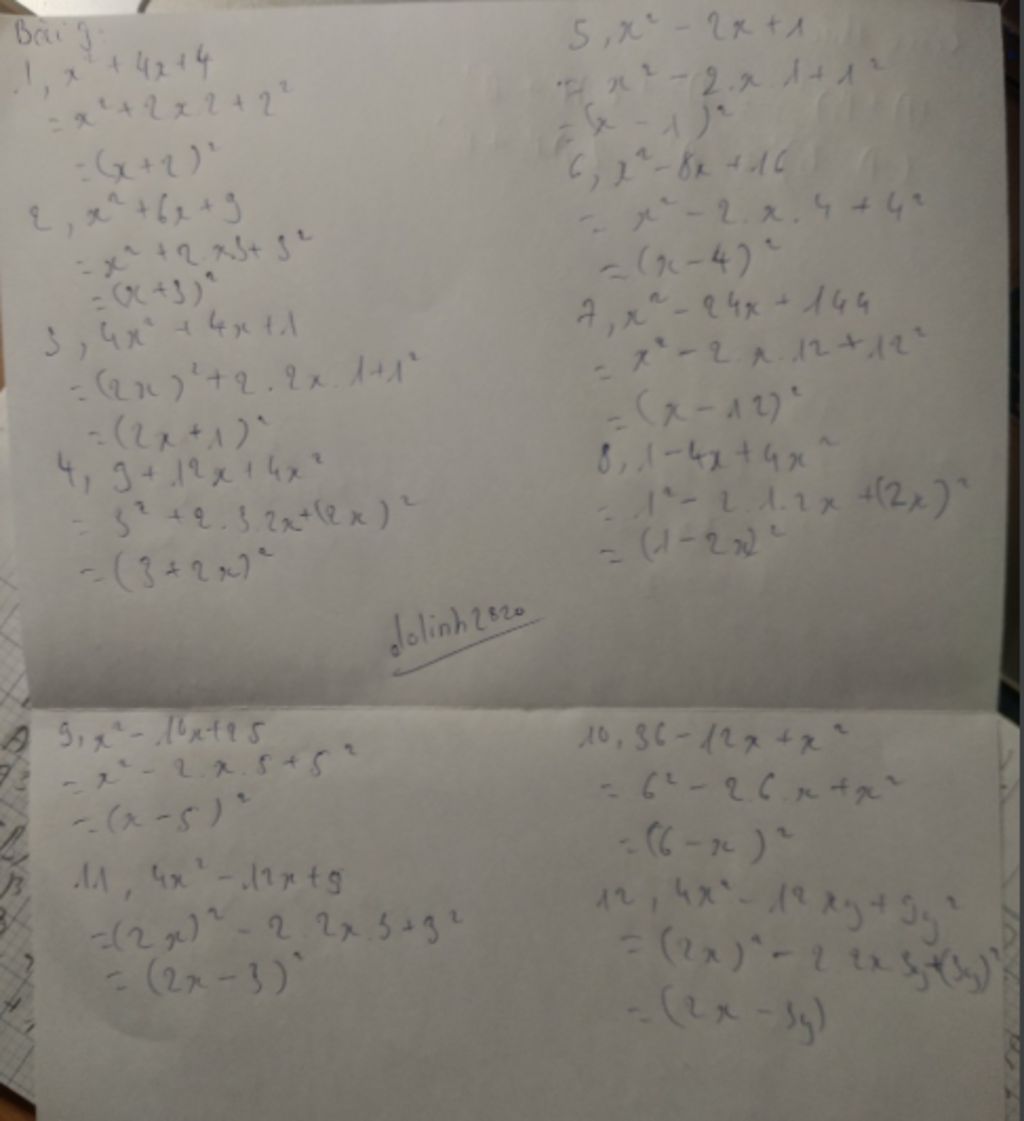 Bài 3:
1, x² + 4x + 4
= x² + 2 x 2 + 2²
= (x + 2)²
2, x² + 6x + 9
= x² + 2. x3 + 3²
= (x + 3)²
3, 4x² + 4x + 1
= (2x)² + 2. 2x. 1 + 1²
= (2x + 1)²
4, 9 + 12x + 4x²
= 3² + 2. 3 2x + (2x)²
= (3 + 2x)²
5, x² - 2x + 1
= x² - 2. x. 1 + 1²
= (x - 1)²
6, x² - 8x + 16
= x² - 2. x. 4 + 4²
= (x - 4)²
7, x² - 24x + 144
= x² - 2. x. 12 + 12²
= (x - 12)²
8, 1 - 4x + 4x²
= 1² - 2. 1. 2x + (2x)²
= (1 - 2x)²
dolinh2820
9, x² - 10x + 25
= x² - 2. x. 5 + 5²
= (x - 5)²
10, 36 - 12x + x²
= 6² - 2 6. x + x²
= (6 - x)²
11, 4x² - 12x + 9
= (2x)² - 2. 2x. 3 + 3²
= (2x - 3)²
12, 4x² - 12xy + 9y²
= (2x)² - 2 2x 3y + (3y)²
= (2x - 3y)